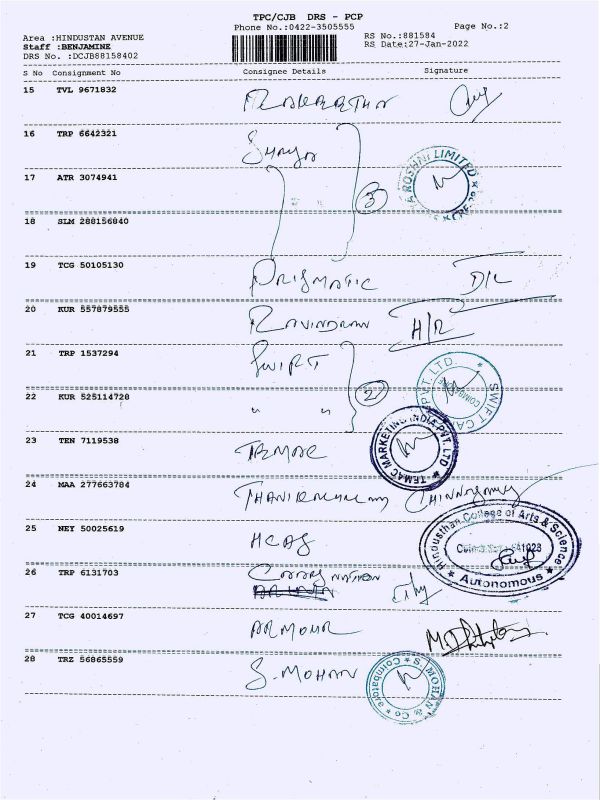 TPC/CJB DRS - PCP
Phone No.:0422-3505555
Page No.:2
Area :HINDUSTAN AVENUE
Staff :BENJAMINE
DRS No. :DCJB88158402
RS No.:881584
RS Date:27-Jan-2022
S No Consignment No Consignee Details Signature
15 TVL 9671832
16 TRP 6642321 Surya
17 ATR 3074941 3
ROSHNI LIMITED
18 SLM 288156840
19 TCG 50105130 PRISMATIC D/L
20 KUR 557879555 RAVINDRAN H/R
21 TRP 1537294 SWIFT
22 KUR 525114728 " " 2
SWIFT CA PVT. LTD.
23 TEN 7119538 TEMAC
TEMAC MARKETING INDIA PVT. LTD
24 MAA 277663784
25 NEY 50025619 HCAS
Hindusthan College of Arts & Science
641028
Autonomous
26 TRP 6131703
27 TCG 40014697 ARMOUR
28 TRZ 56865559 S. MOHAN
S. MOHAN & Co
Coimbatore